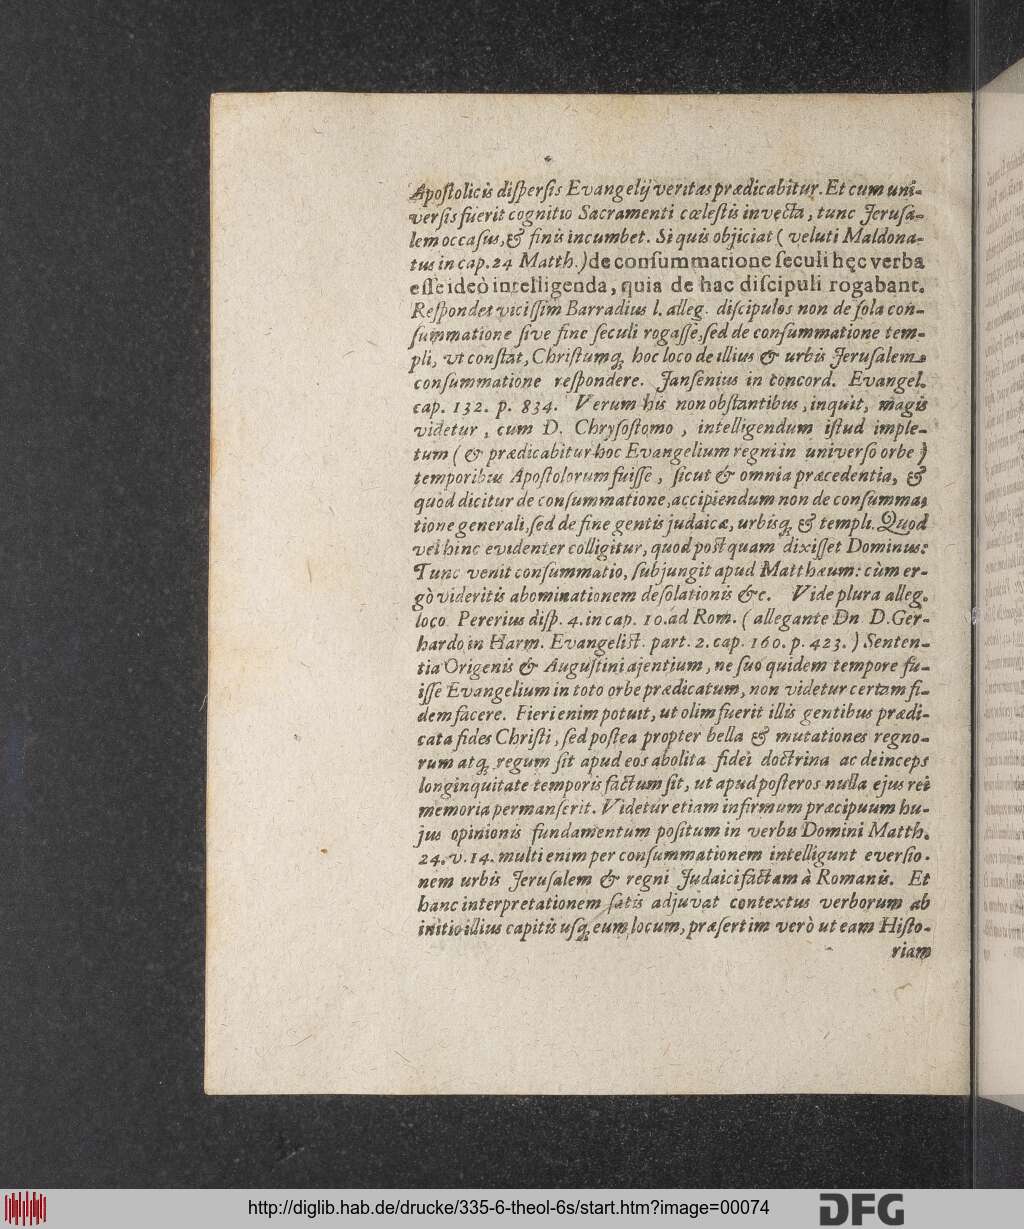 Apoſtolicis diſperſis Evangelij veritas prædicabitur. Et cum uni-
verſis fuerit cognitio Sacramenti cœleſtis invecta, tunc Jeruſa-
lem occaſus, & finis incumbet. Si quis objiciat ( veluti Maldona-
tus in cap. 24 Matth. ) de conſummatione ſeculi hęc verba
eſſe ideò intelligenda, quia de hac diſcipuli rogabant.
Reſpondet viciſſim Barradius l. alleg. diſcipulos non de ſola con-
ſummatione ſive fine ſeculi rogaſſe, ſed de conſummatione tem-
pli, ut conſtat, Chriſtumq́; hoc loco de illius & urbis Jeruſalem
conſummatione reſpondere. Janſenius in concord. Evangel.
cap. 132. p. 834. Verum his non obſtantibus, inquit, magis
videtur, cum D. Chryſoſtomo, intelligendum iſtud imple-
tum ( & prædicabitur hoc Evangelium regni in univerſo orbe )
temporibus Apoſtolorum fuiſſe, ſicut & omnia præcedentia, &
quòd dicitur de conſummatione, accipiendum non de conſumma-
tione generali, ſed de fine gentis judaicæ, urbisq́; & templi. Quod
vel hinc evidenter colligitur, quod poſtquam dixiſſet Dominus:
Tunc venit conſummatio, ſubjungit apud Matthæum: cùm er-
gò videritis abominationem deſolationis &c. Vide plura alleg.
loco Pererius diſp. 4. in cap. 10. ad Rom. ( allegante Dn D. Ger-
hardo in Harm. Evangeliſt. part. 2. cap. 160. p. 423. ) Senten-
tia Origenis & Auguſtini ajentium, ne ſuo quidem tempore fu-
iſſe Evangelium in toto orbe prædicatum, non videtur certam fi-
dem facere. Fieri enim potuit, ut olim fuerit illis gentibus prædi-
cata fides Chriſti, ſed poſtea propter bella & mutationes regno-
rum atq́; regum ſit apud eos abolita fidei doctrina ac deinceps
longinquitate temporis factum ſit, ut apud poſteros nulla ejus rei
memoria permanſerit. Videtur etiam infirmum præcipuum hu-
jus opinionis fundamentum poſitum in verbis Domini Matth.
24. v. 14. multi enim per conſummationem intelligunt everſio-
nem urbis Jeruſalem & regni Judaici factam à Romanis. Et
hanc interpretationem ſatis adjuvat contextus verborum ab
initio illius capitis uſq́; eum locum, præſertim verò ut eam Hiſto-
riam
http://diglib.hab.de/drucke/335-6-theol-6s/start.htm?image=00074
DFG